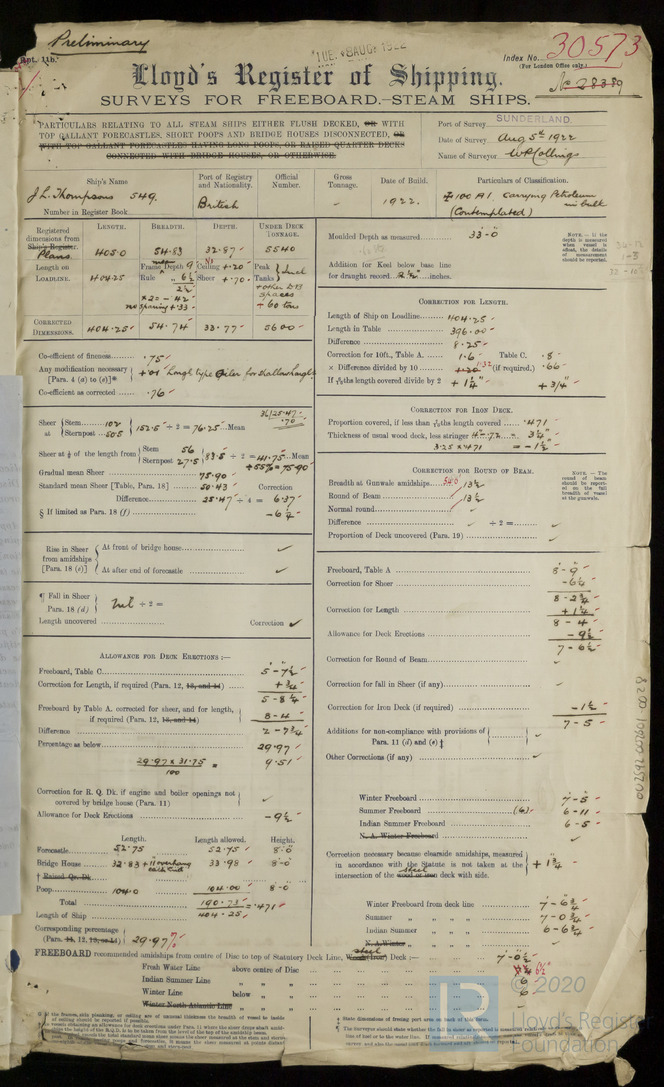 Preliminary
TUE. 8 AUG 1922
Rpt. 11b.
Index No. 30573
(For London Office only.)
No 28389
Lloyd's Register of Shipping.
SURVEYS FOR FREEBOARD.—STEAM SHIPS.
PARTICULARS RELATING TO ALL STEAM SHIPS EITHER FLUSH DECKED, OR WITH
TOP GALLANT FORECASTLES, SHORT POOPS AND BRIDGE HOUSES DISCONNECTED, OR
WITH TOP GALLANT FORECASTLES HAVING LONG POOPS, OR RAISED QUARTER DECKS
CONNECTED WITH BRIDGE HOUSES, OR OTHERWISE.
Port of Survey SUNDERLAND.
Date of Survey Aug 5th 1922
Name of Surveyor W R Collings
Ship's Name
Port of Registry and Nationality.
Official Number.
Gross Tonnage.
Date of Build.
Particulars of Classification.
J L Thompsons 549.
British
1922.
100 A1 Carrying Petroleum in bulk
(Contemplated)
Number in Register Book
Registered dimensions from Ship's Register. Plans.
LENGTH. BREADTH. DEPTH. UNDER DECK TONNAGE.
405.0 54.83 32.87 5540
Length on LOADLINE. 404.25
Frame Depth 9
Rule 6½
2½
×2 = .42
no sparing +.33
Ceiling +.20
Sheer +.70
Peak Tanks
+ 60 tons
CORRECTED DIMENSIONS. 404.25 54.74 33.77 5600
Moulded Depth as measured 33-0
Addition for Keel below base line
for draught record 2½ inches.
NOTE.—If the depth is measured when vessel is afloat, the details of measurement should be reported.
Co-efficient of fineness .75
Any modification necessary [Para. 4 (a) to (e)]* +.01
Co-efficient as corrected .76
CORRECTION FOR LENGTH.
Length of Ship on Loadline 404.25
Length in Table 396.00
Difference 8.25
Correction for 10ft., Table A. 1.6 Table C. .8
× Difference divided by 10 1.32 (if required.) .66
If 6/10ths length covered divide by 2 + 1¼" + 3/4"
Sheer at Stem 102 Sternpost 50.5 152.5 ÷ 2 = 76.25 Mean
36)25.47
.70
Sheer at ⅛ of the length from Stem 56 Sternpost 27.5 83.5 ÷ 2 = 41.75 Mean
+ 55% = 75.90
Gradual mean Sheer 75.90
Standard mean Sheer [Table, Para. 18] 50.43 Correction
Difference 25.47 ÷ 4 = 6.37
§ If limited as Para. 18 (f) −6¼
CORRECTION FOR IRON DECK.
Proportion covered, if less than 7/10ths length covered .471
Thickness of usual wood deck, less stringer 3¼"
3.25 × .471 = −1½"
CORRECTION FOR ROUND OF BEAM.
Breadth at Gunwale amidships 54.6 13½
Round of Beam 13½
Normal round
Difference ÷ 2 =
Proportion of Deck uncovered (Para. 19)
NOTE.—The round of beam should be reported on the full breadth of vessel at the gunwale.
Rise in Sheer from amidships [Para. 18 (e)]
At front of bridge house
At after end of forecastle
¶ Fall in Sheer Para. 18 (d) Nil ÷ 2 =
Length uncovered Correction
Freeboard, Table A 8-9
Correction for Sheer −6¼
8-2¾
Correction for Length +1¼
8-4
Allowance for Deck Erections −9½
7-6½
Correction for Round of Beam
Correction for fall in Sheer (if any)
Correction for Iron Deck (if required) −1½
7-5
Additions for non-compliance with provisions of Para. 11 (d) and (e) ‡
Other Corrections (if any)
ALLOWANCE FOR DECK ERECTIONS:—
Freeboard, Table C 5-7½
Correction for Length, if required (Para. 12, 13, and 14) +¾
5-8¼
Freeboard by Table A. corrected for sheer, and for length, if required (Para. 12, 13, and 14) 8-4
Difference 2-7¾
Percentage as below 29.97
29.97 × 31.75 / 100 = 9.51
Correction for R. Q. Dk. if engine and boiler openings not covered by bridge house (Para. 11)
Allowance for Deck Erections −9½
Length. Length allowed. Height.
Forecastle 52.75 52.75 8-0
Bridge House 32.83 + 11 overhang each end 33.98 8-0
† Raised Qr. Dk.
Poop 104.0 104.00 8-0
Total 190.73 = .471
Length of Ship 404.25
Corresponding percentage (Para. 11, 12, 13, or 14) 29.97%
Winter Freeboard 7-5
Summer Freeboard (6) 6-11
Indian Summer Freeboard 6-5
N. A. Winter Freeboard
Correction necessary because clearside amidships, measured in accordance with the Statute is not taken at the intersection of the wood or iron steel deck with side. + 1¾
Winter Freeboard from deck line 7-6¾
Summer " " " " 7-0¾
Indian Summer " " " " 6-6¾
N. A. Winter " " " "
FREEBOARD recommended amidships from centre of Disc to top of Statutory Deck Line, Wood (Iron) steel Deck:— 7-0½
Fresh Water Line above centre of Disc 6½
Indian Summer Line " " " 6
Winter Line below " " 6
Winter North Atlantic Line " " "
8200-10200-785700
© 2020
Lloyd's Register
Foundation